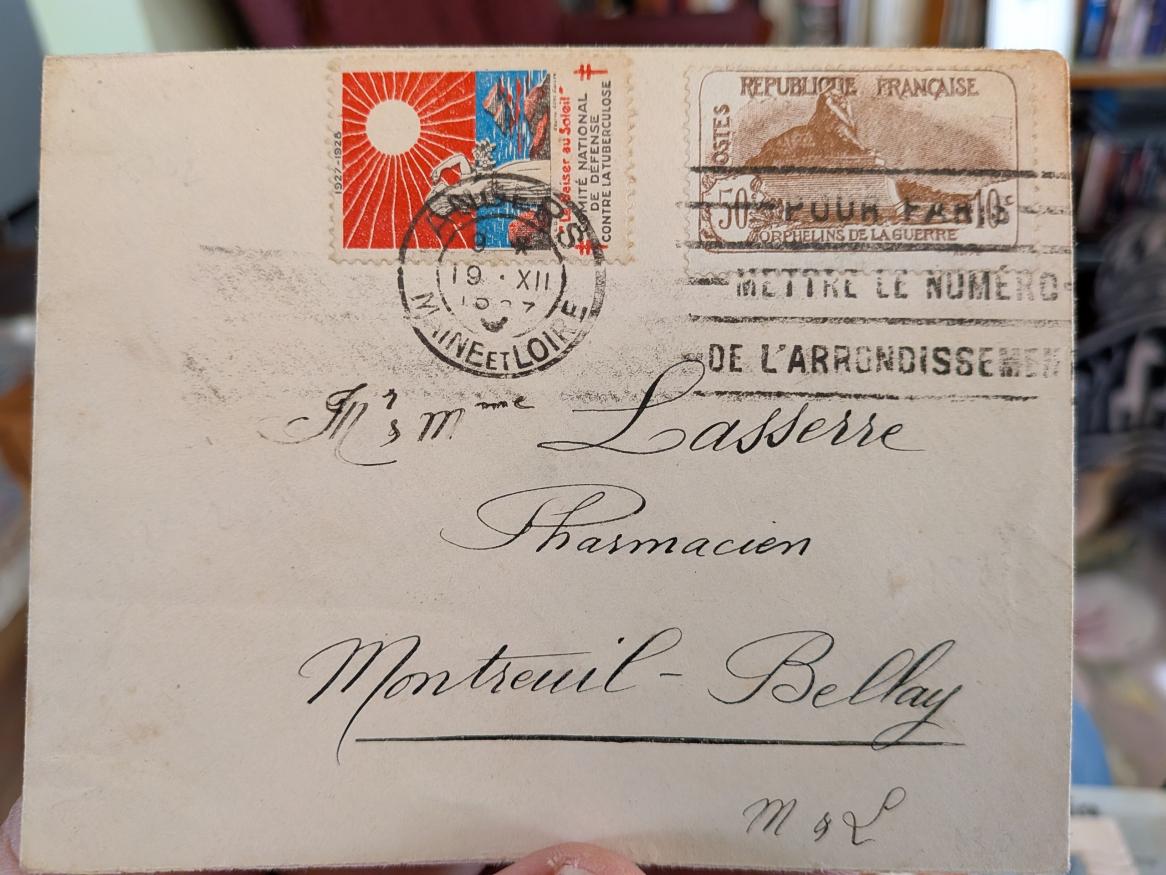 1927-1928
"Le Baiser au Soleil"
COMITÉ NATIONAL
DE DÉFENSE
CONTRE LA TUBERCULOSE
REPUBLIQUE FRANÇAISE
POSTES
50c 10c
ORPHELINS DE LA GUERRE
ANGERS
19 · XII
1927
MAINE ET LOIRE
POUR PARIS
METTRE LE NUMÉRO
DE L'ARRONDISSEMEN
Mr & Mme Lasserre
Pharmacien
Montreuil-Bellay
M & L